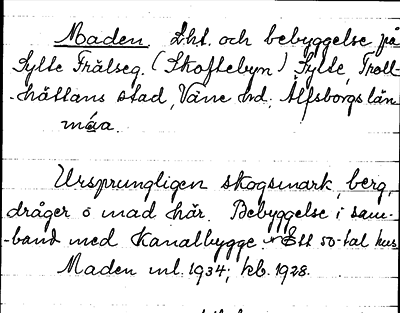 Maden Lht. och bebyggelse på
Sylte Frälseg. (Skoftebyn) Sylte, Troll-
-hättans stad, Väne hd. Älfsborgs län
måa.
Ursprungligen skogsmark, berg,
dråger o mad här. Bebyggelse i sam-
-band med Kanalbygge. Ett 50-tal hus
Maden inl. 1934; kb. 1928.